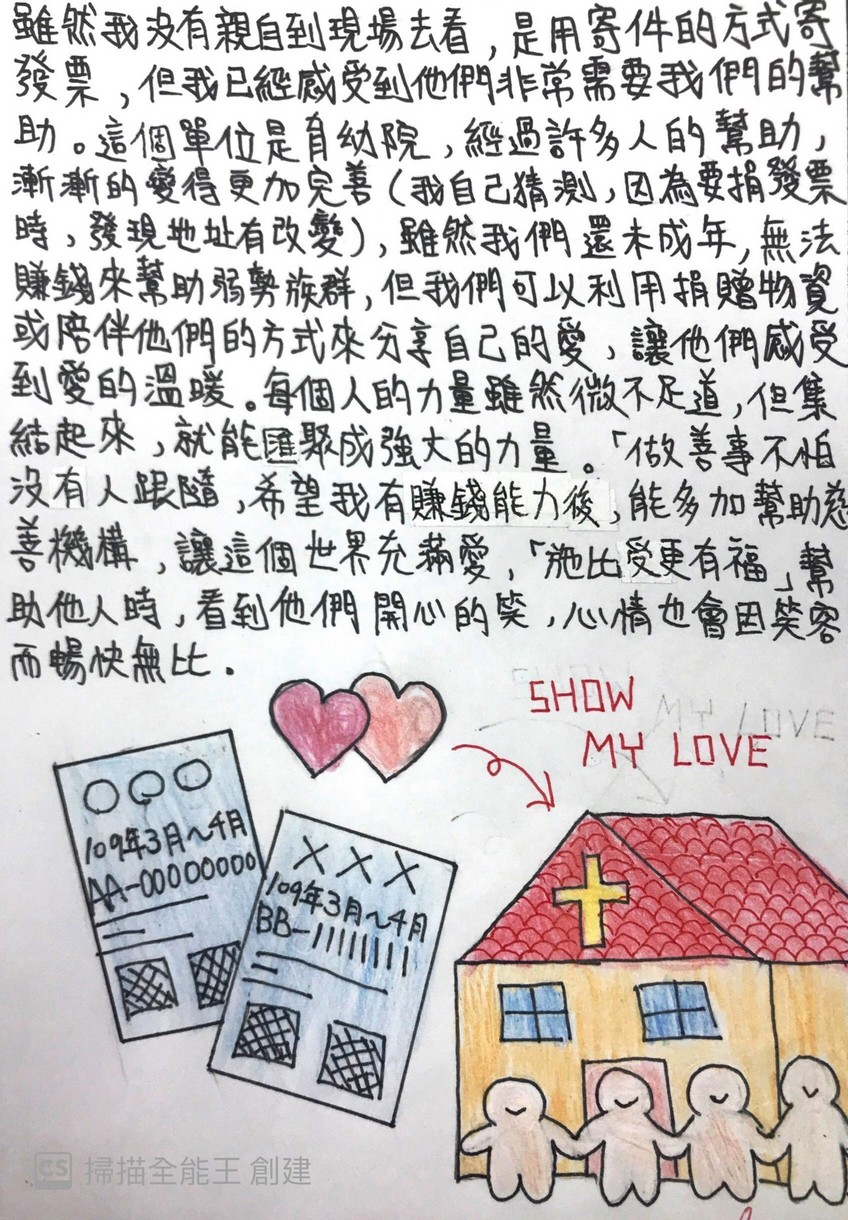 雖然我沒有親自到現場去看，是用寄件的方式寄
發票，但我已經感受到他們非常需要我們的幫
助。這個單位是育幼院，經過許多人的幫助，
漸漸的變得更加完善（我自己猜測，因為要捐發票
時，發現地址有改變），雖然我們還未成年，無法
賺錢來幫助弱勢族群，但我們可以利用捐贈物資
或陪伴他們的方式來分享自己的愛，讓他們感受
到愛的溫暖。每個人的力量雖然微不足道，但集
結起來，就能匯聚成強大的力量。「做善事不怕
沒有人跟隨，希望我有賺錢能力後，能多加幫助慈
善機構，讓這個世界充滿愛，「施比受更有福」幫
助他人時，看到他們開心的笑，心情也會因笑容
而暢快無比。
SHOW
MY LOVE
○○○
109年3月～4月
AA-00000000
×××
109年3月～4月
BB-11111111
CS 掃描全能王 創建